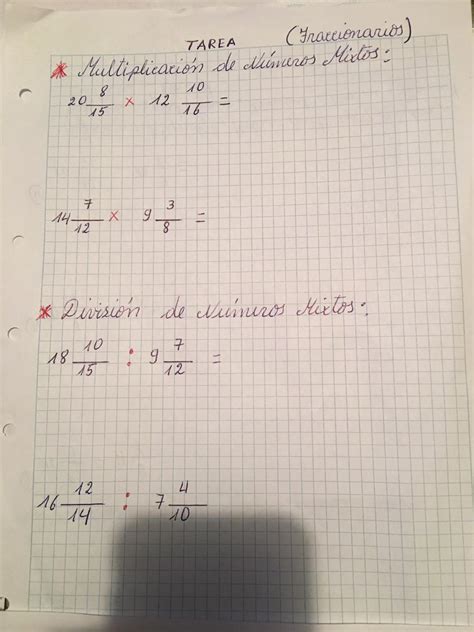 TAREA (Fraccionarios)
* Multiplicación de Números Mixtos:
20 8/15 × 12 10/16 =
14 7/12 × 9 3/8 =
* División de Números Mixtos:
18 10/15 : 9 7/12 =
16 12/14 : 7 4/10